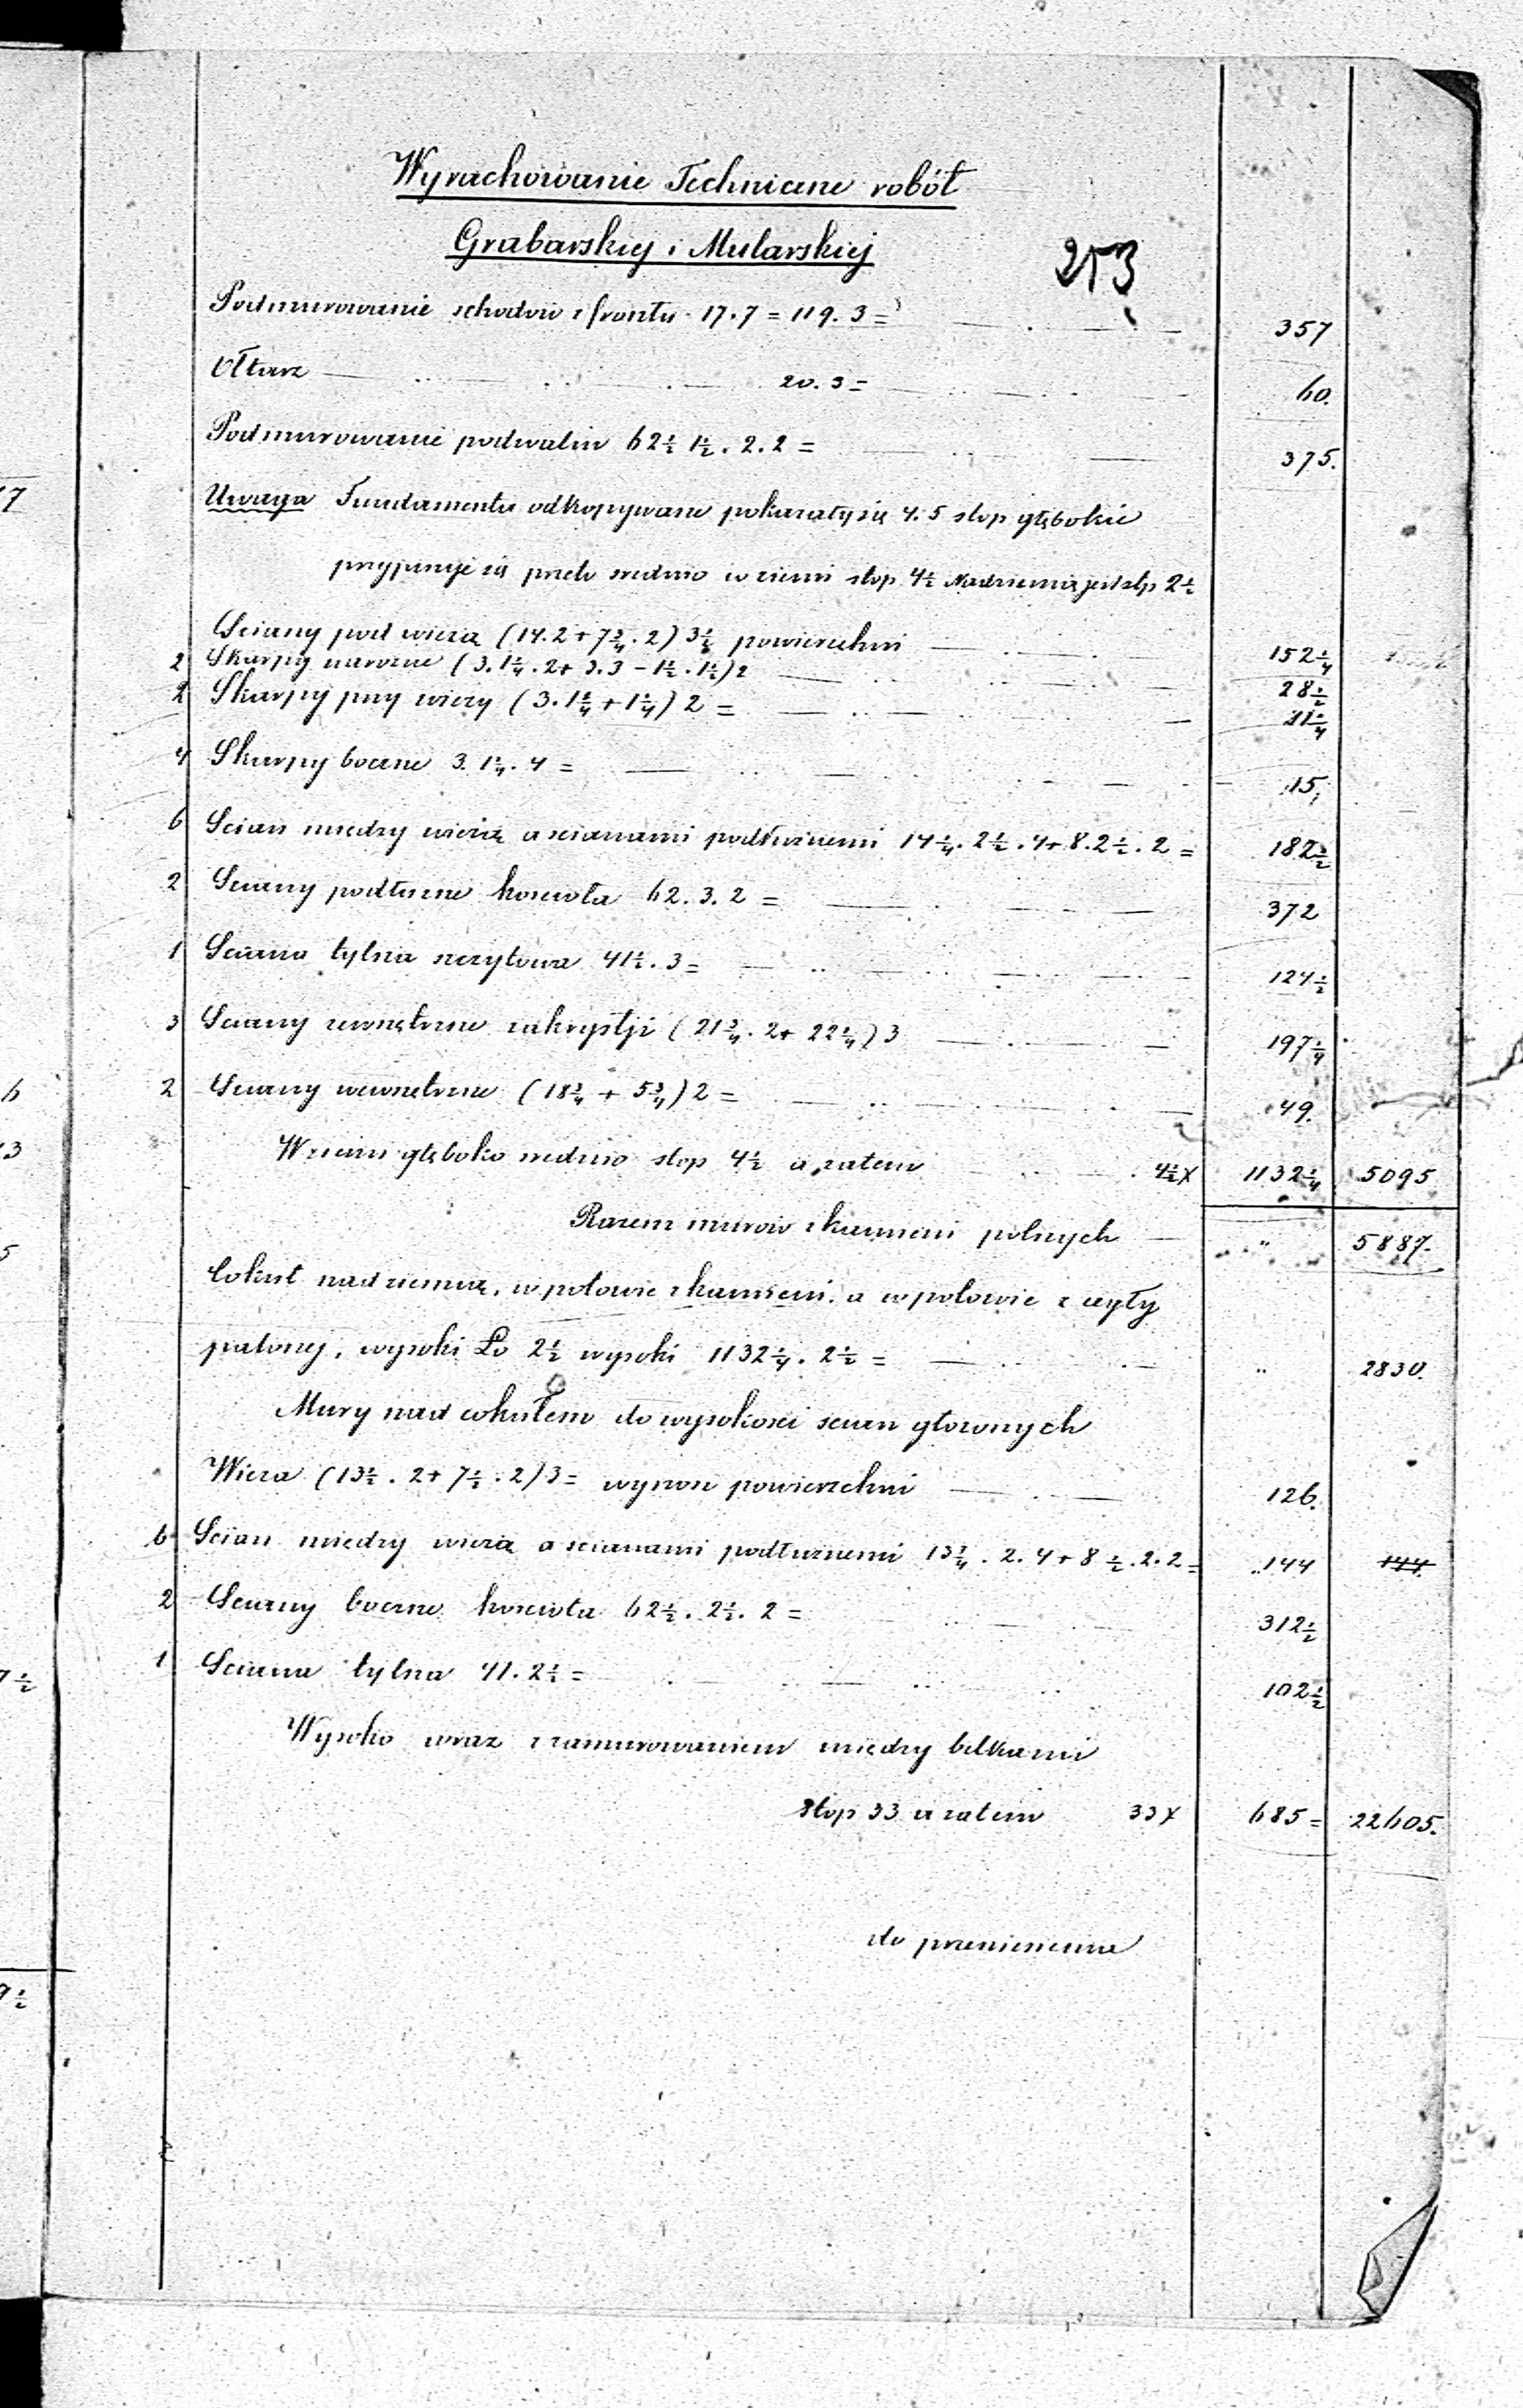 Wyrachowanie Techniczne robót
Grabarskiej i Mularskiej
253
Podmurowanie schodow z frontu 17.7 = 119. 3 = 357
Ołtarz 20. 3 = 60.
Podmurowanie podwalin 62½ 1½. 2. 2 = 375.
Uwaga Fundamenta odkopywane pokazały się 4. 5 stop głębokie
przyjmuje się przeto srednio w ziemi stop 4½ Nad ziemią jest stp 2½
Sciany pod wieżą (14. 2 + 7¾. 2) 3½ powierzchni 152¼
2 Skarpy narożne (3. 1¼. 2 + 3. 3 - 1½. 1½) 2 28½
2 Skarpy przy wieży (3. 1¼ + 1¼) 2 = 11¼
4 Skarpy boczne 3. 1¼. 4 = 15.
6 Scian między wieżą a scianami podłużnemi 14¼. 2½. 4 + 8. 2½. 2 = 182½
2 Sciany podłużne kosciola 62. 3. 2 = 372
1 Sciana tylna szczytowa 41½. 3 = 124½
3 Sciany zewnętrzne zakrystji (21¾. 2 + 22¼) 3 197¼
2 Sciany wewnetrzne (18¾ + 5¾) 2 = 49.
W ziemi głęboko srednio stop 4½ a zatem 4½ X 1132¼ 5095
Razem murow z kamieni polnych " 5887.
Cokuł nad ziemią, w połowie z kamieni a w polowie z cegły
palonej, wysoki 2½ wysoki 1132¼. 2½ = " 2830.
Mury nad cokułem do wysokosci scian głownych
Wieża (13½. 2 + 7½. 2) 3 = wynosi powierzchni 126.
6 Scian między wieżą a scianami podłużnemi 13¾. 2. 4 + 8½. 2. 2 = 144 144.
2 Sciany boczne kosciola 62½. 2½. 2 = 312½
1 Sciana tylna 41. 2½ = 102½
Wysoko wraz z zamurowaniem między belkami
stop 33 a zatem 33 X 685 = 22605.
do przeniesienia